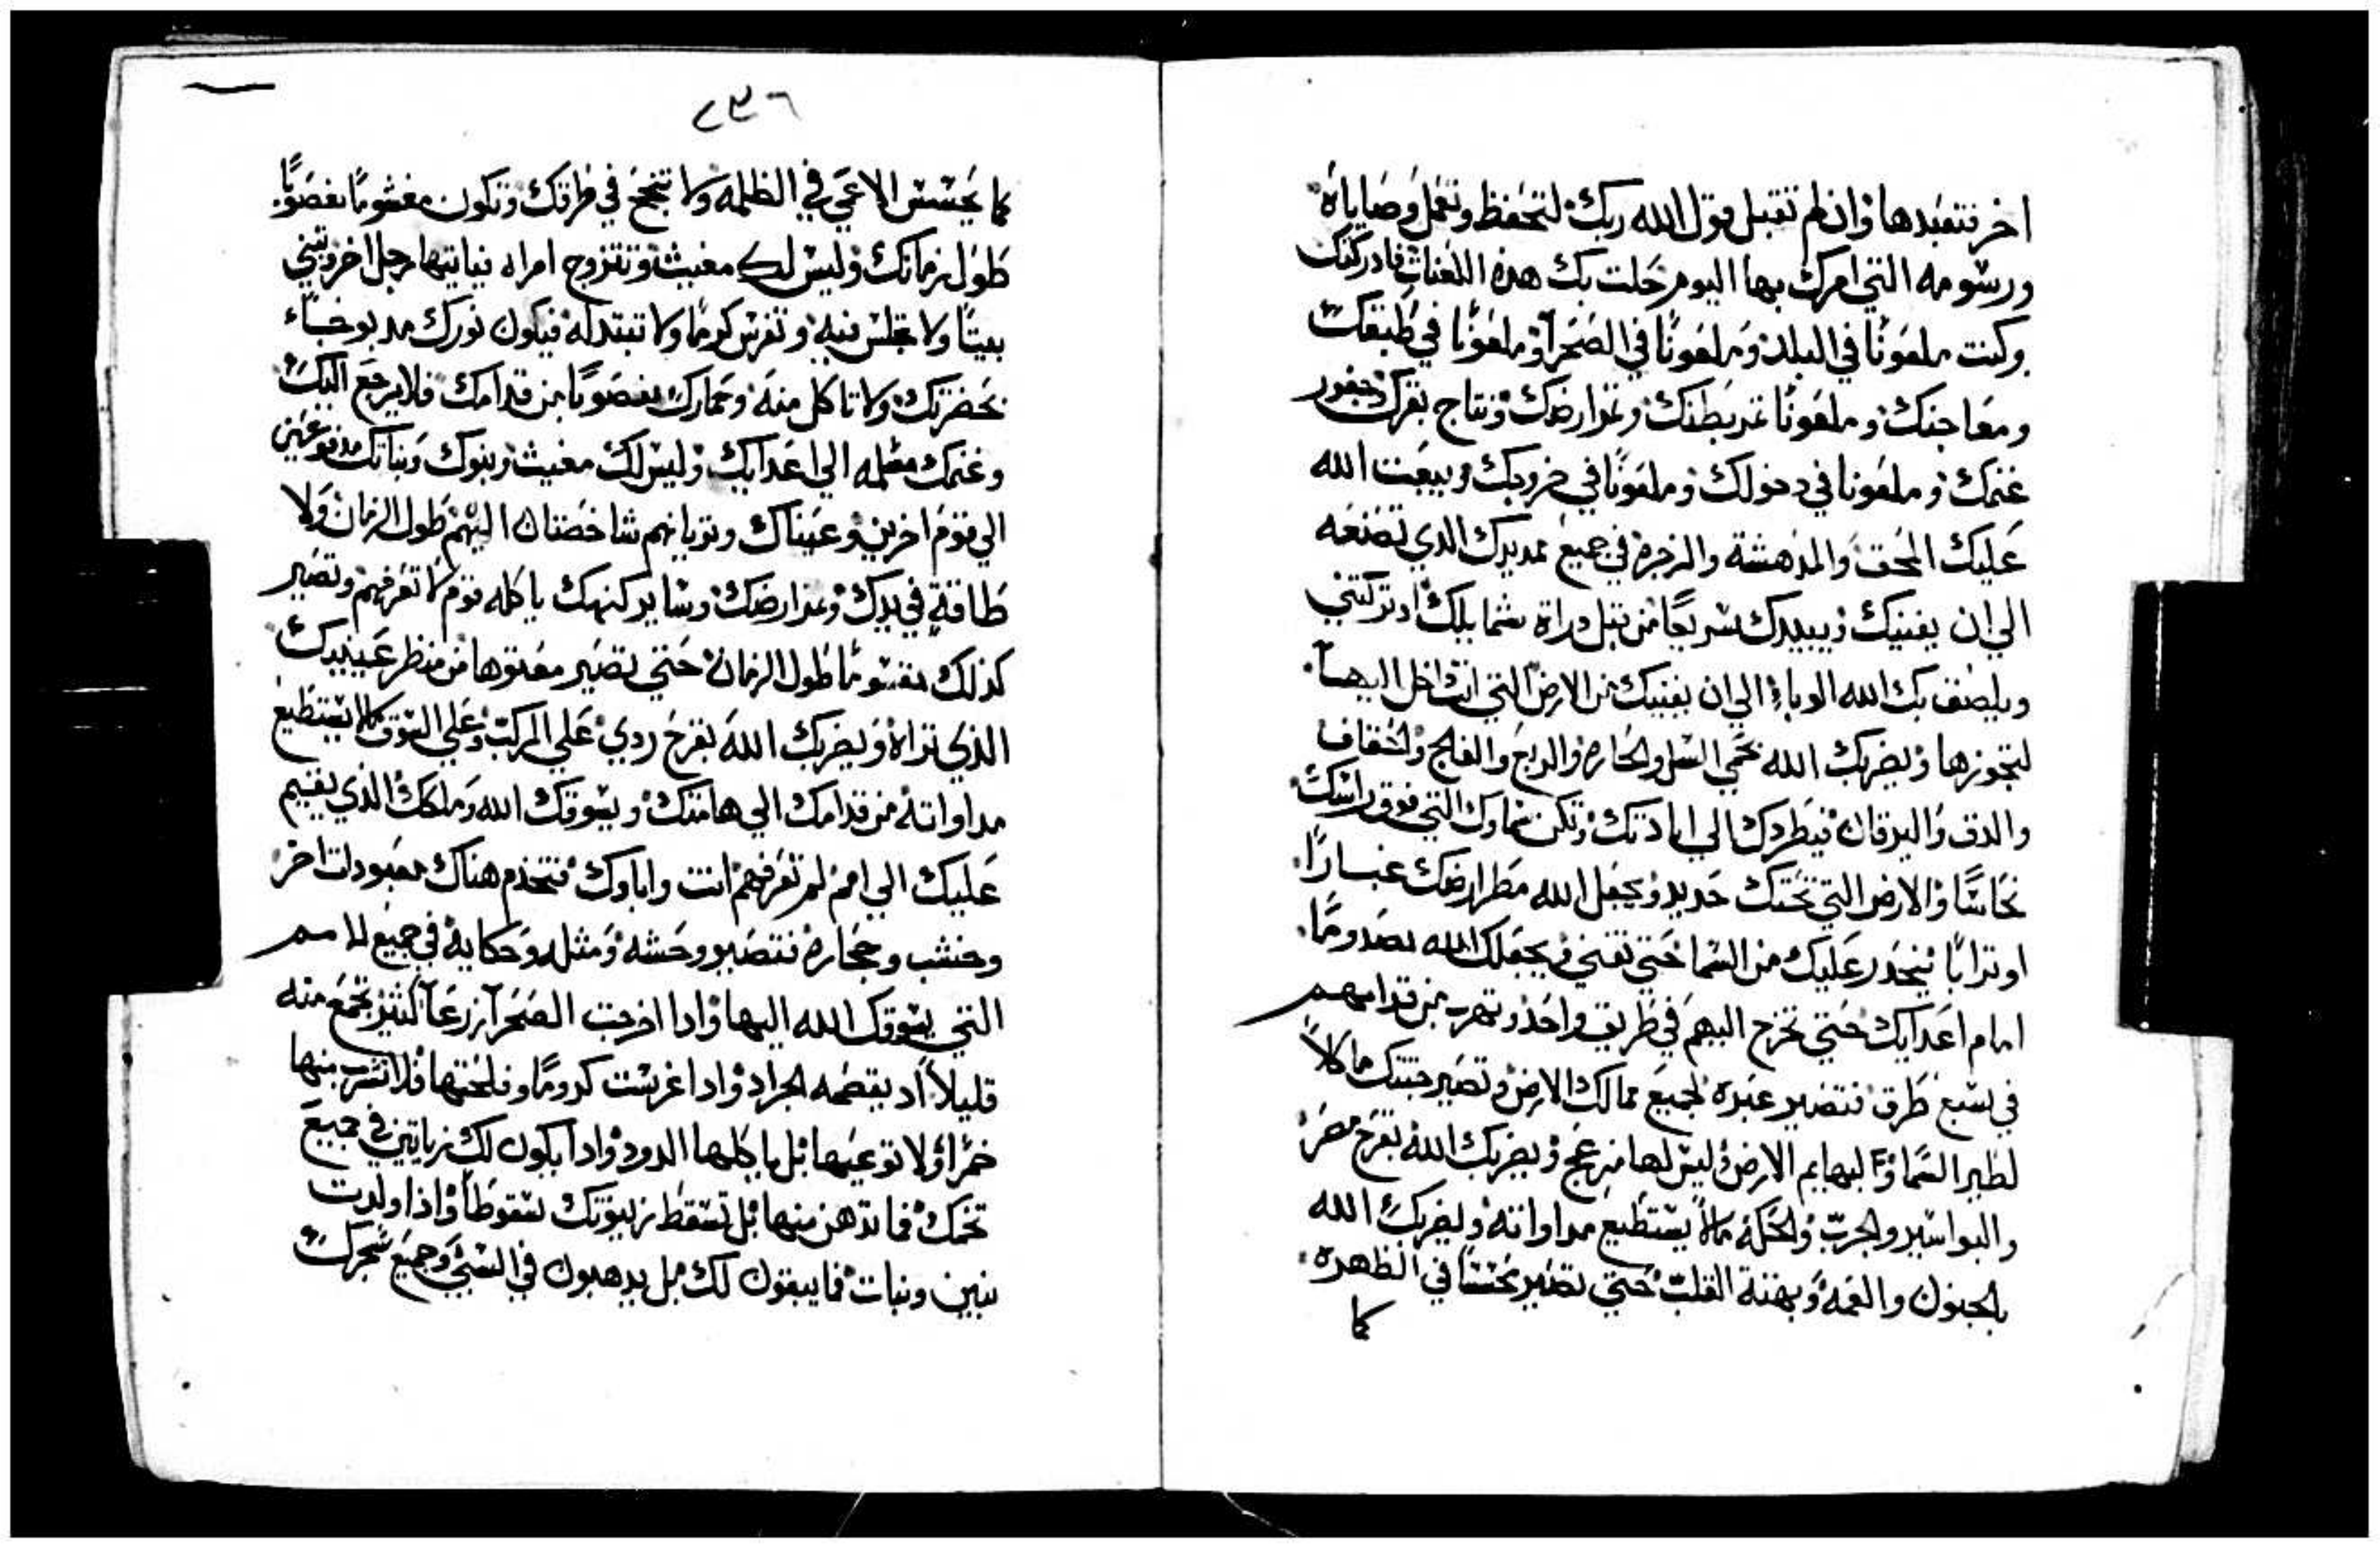 اخر فتعبدها وان لم تقبل قول الله ربك لتحفظ وتعمل وصاياه
ورسومه التي امرك بها اليوم حلت بك هذه اللعنات فادركتك
وكنت ملعونًا في البلد وملعونًا في الصحرا وملعونًا في طبقك
ومعاجنك وملعونًا ثمر بطنك وثمر ارضك ونتاج بقرك وجفور
غنمك وملعونا في دخولك وملعونًا في خروجك ويبعت الله
عليك المحق والمدهشة والزجره في جميع مد يدك الذي تصنعه
الي ان يفنيك ويبيدك سريعًا من قبل رداة شمايلك اد تركتني
ويلصف بك الله الوباء الي ان يفنيك من الارض التي انت داخل اليها
لتجوزها ويضربك الله بحمي السل والحاره والربع والفالج والخفاف
والدق واليرقان فيطردك الي ابادتك وتكن سماوك التي فوق راسك
نحاسًا والارض التي تحتك حديد ويجعل الله مطر ارضك غبارًا
او ترابًا ينحدر عليك من السما حتي تفني ويجعلك الله مصدومًا
امام اعدايك حتي تخرج اليهم في طريق واحد وتهرب من قدامهم
في سبع طرق فتصير عبره لجميع ممالك الارض وتصير جثتك ماكلاً
لطير السما والبهايم الارض وليس لها مزعج ويضربك الله بقرح مصر
والبواسير والجرب والحكه مالا يستطيع مداواته ويضربك الله
بالجنون والعمه وبهتة القلب حتي تصير تجسسًا في الظهره
كما
٢٣٦
كما يجسس الاعمي في الظلمه ولا تنجح في طرقك وتكون مغشومًا مغصوبًا
طول زمانك وليس لك مغيث وتتزوج امراه فياتيها رجل اخر وتبني
بيتًا ولا تجلس فيه وتغرس كرمًا ولا تبتدله فيكون ثورك مدبوحًا
بحضرتك ولا تاكل منه وحمارك مغصوبًا من قدامك فلا يرجع اليك
وغنمك مسلمه الي اعدايك وليس لك مغيث وبنوك وبناتك مدفوعين
الي قوم اخرين وعيناك وتريانهم شاخصتان اليهم طول الزمان ولا
طاقة في يدك وثمر ارضك وساير كنهك ياكله قوم لا تعرفهم وتصير
كدلك مغشومًا طول الزمان حتي تصير معتوها من منظر عينيك
الذي تراه ويضربك الله بقرح ردي علي الركب وعلي السوق مالا يستطيع
مداواته من قدامك الي هامتك ويسوقك الله وملكك الذي يقيم
عليك الي امم لم تعرفهم انت واباوك فتخدم هناك معبودات اخر
وخشب وحجاره فتصير وحشه ومثله وحكاية في جميع الامم
التي يسوقك الله اليها وادا اخرجت الصحرا زرعًا كثير تجمع منه
قليلاً اد يقضمه الجراد وادا غرست كرومًا وفلحتها فلا تشرب منها
خمرًا ولا توعيها بل ياكلها الدود وادا يكون لك زياتين في جميع
تخمك فما تدهن منها بل تسقط زيتونك سقوطًا واذا اولدت
بنين وبنات فما يبقون لك بل يدهبون في السبي وجميع شجرك